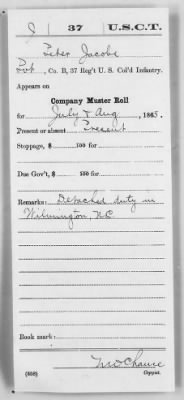 J 37 U.S.C.T.
Peter Jacobs
Pvt, Co. B, 37 Reg't U. S. Col'd Infantry.
Appears on
Company Muster Roll
for July & Aug, 1865.
Present or absent Present
Stoppage, $ 100 for
Due Gov't, $ 100 for
Remarks: Detached duty in
Wilmington, N.C.
Book mark:
(358) Copyist.